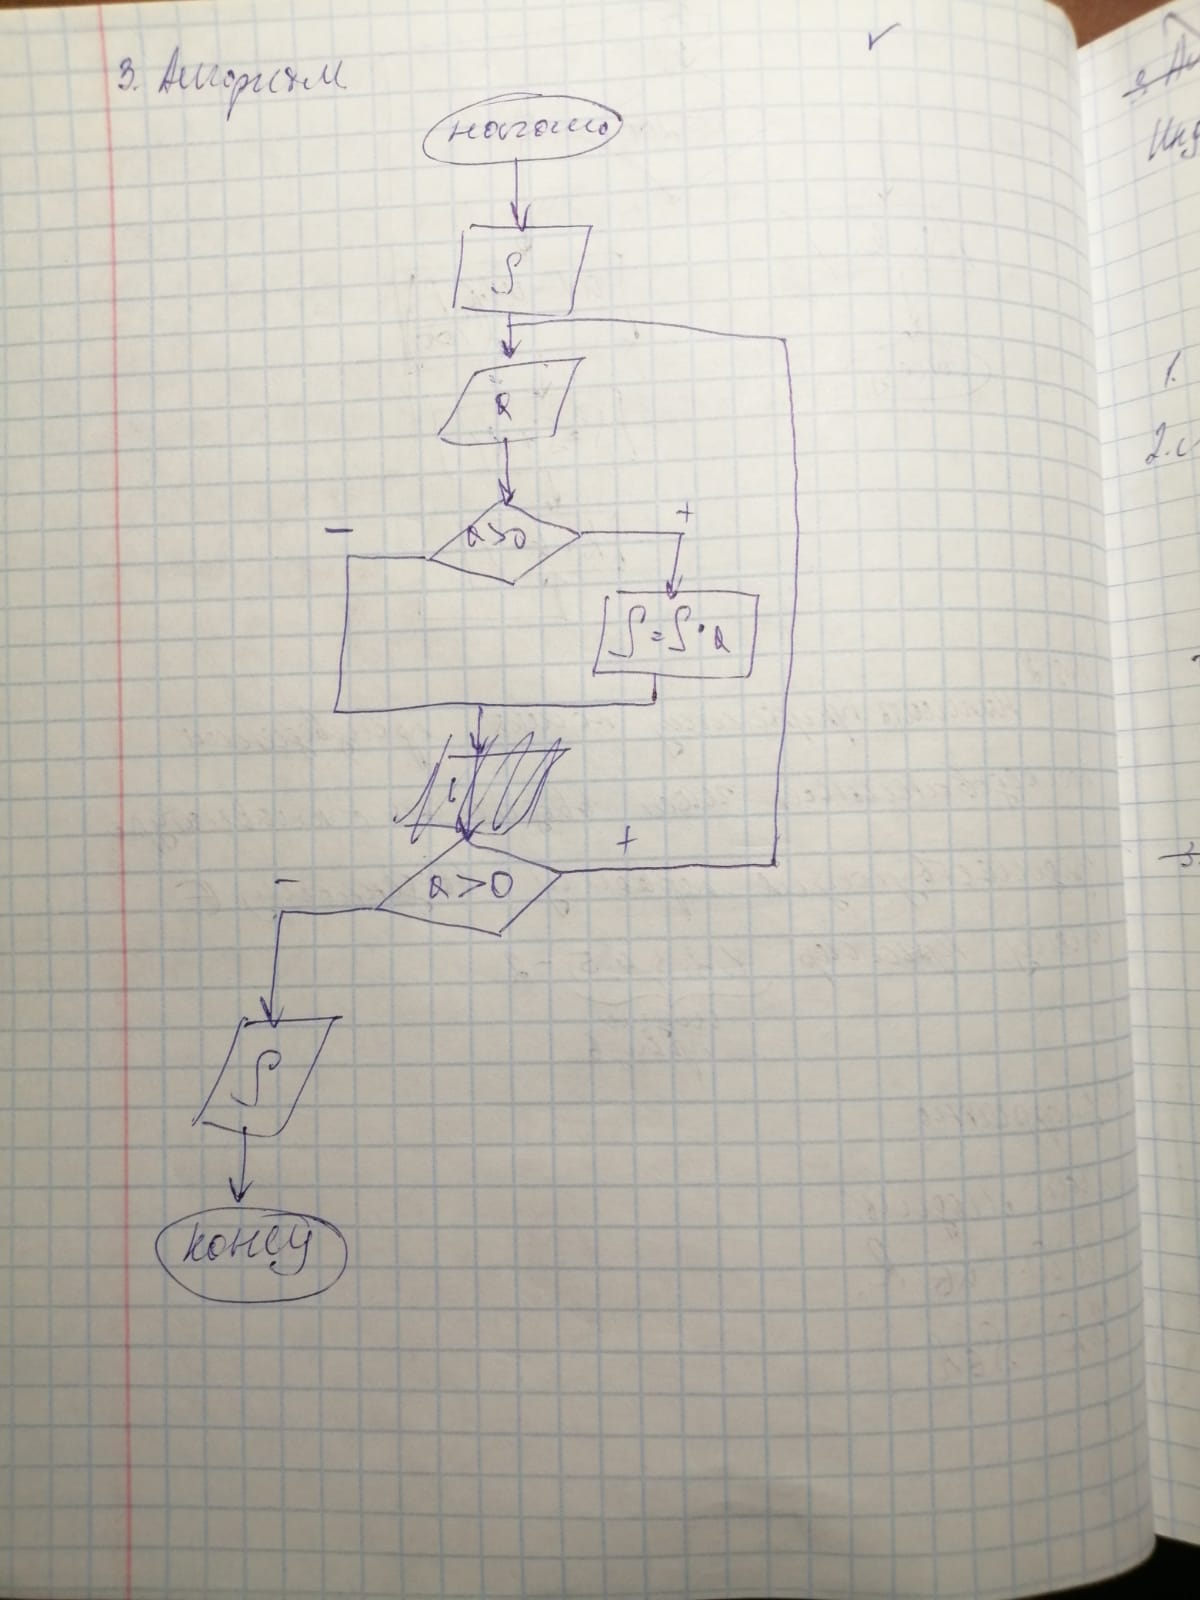 3. Алгоритм
начало
S
a
a>0
-
+
S=S·a
a>0
-
+
S
конец
1.
2.